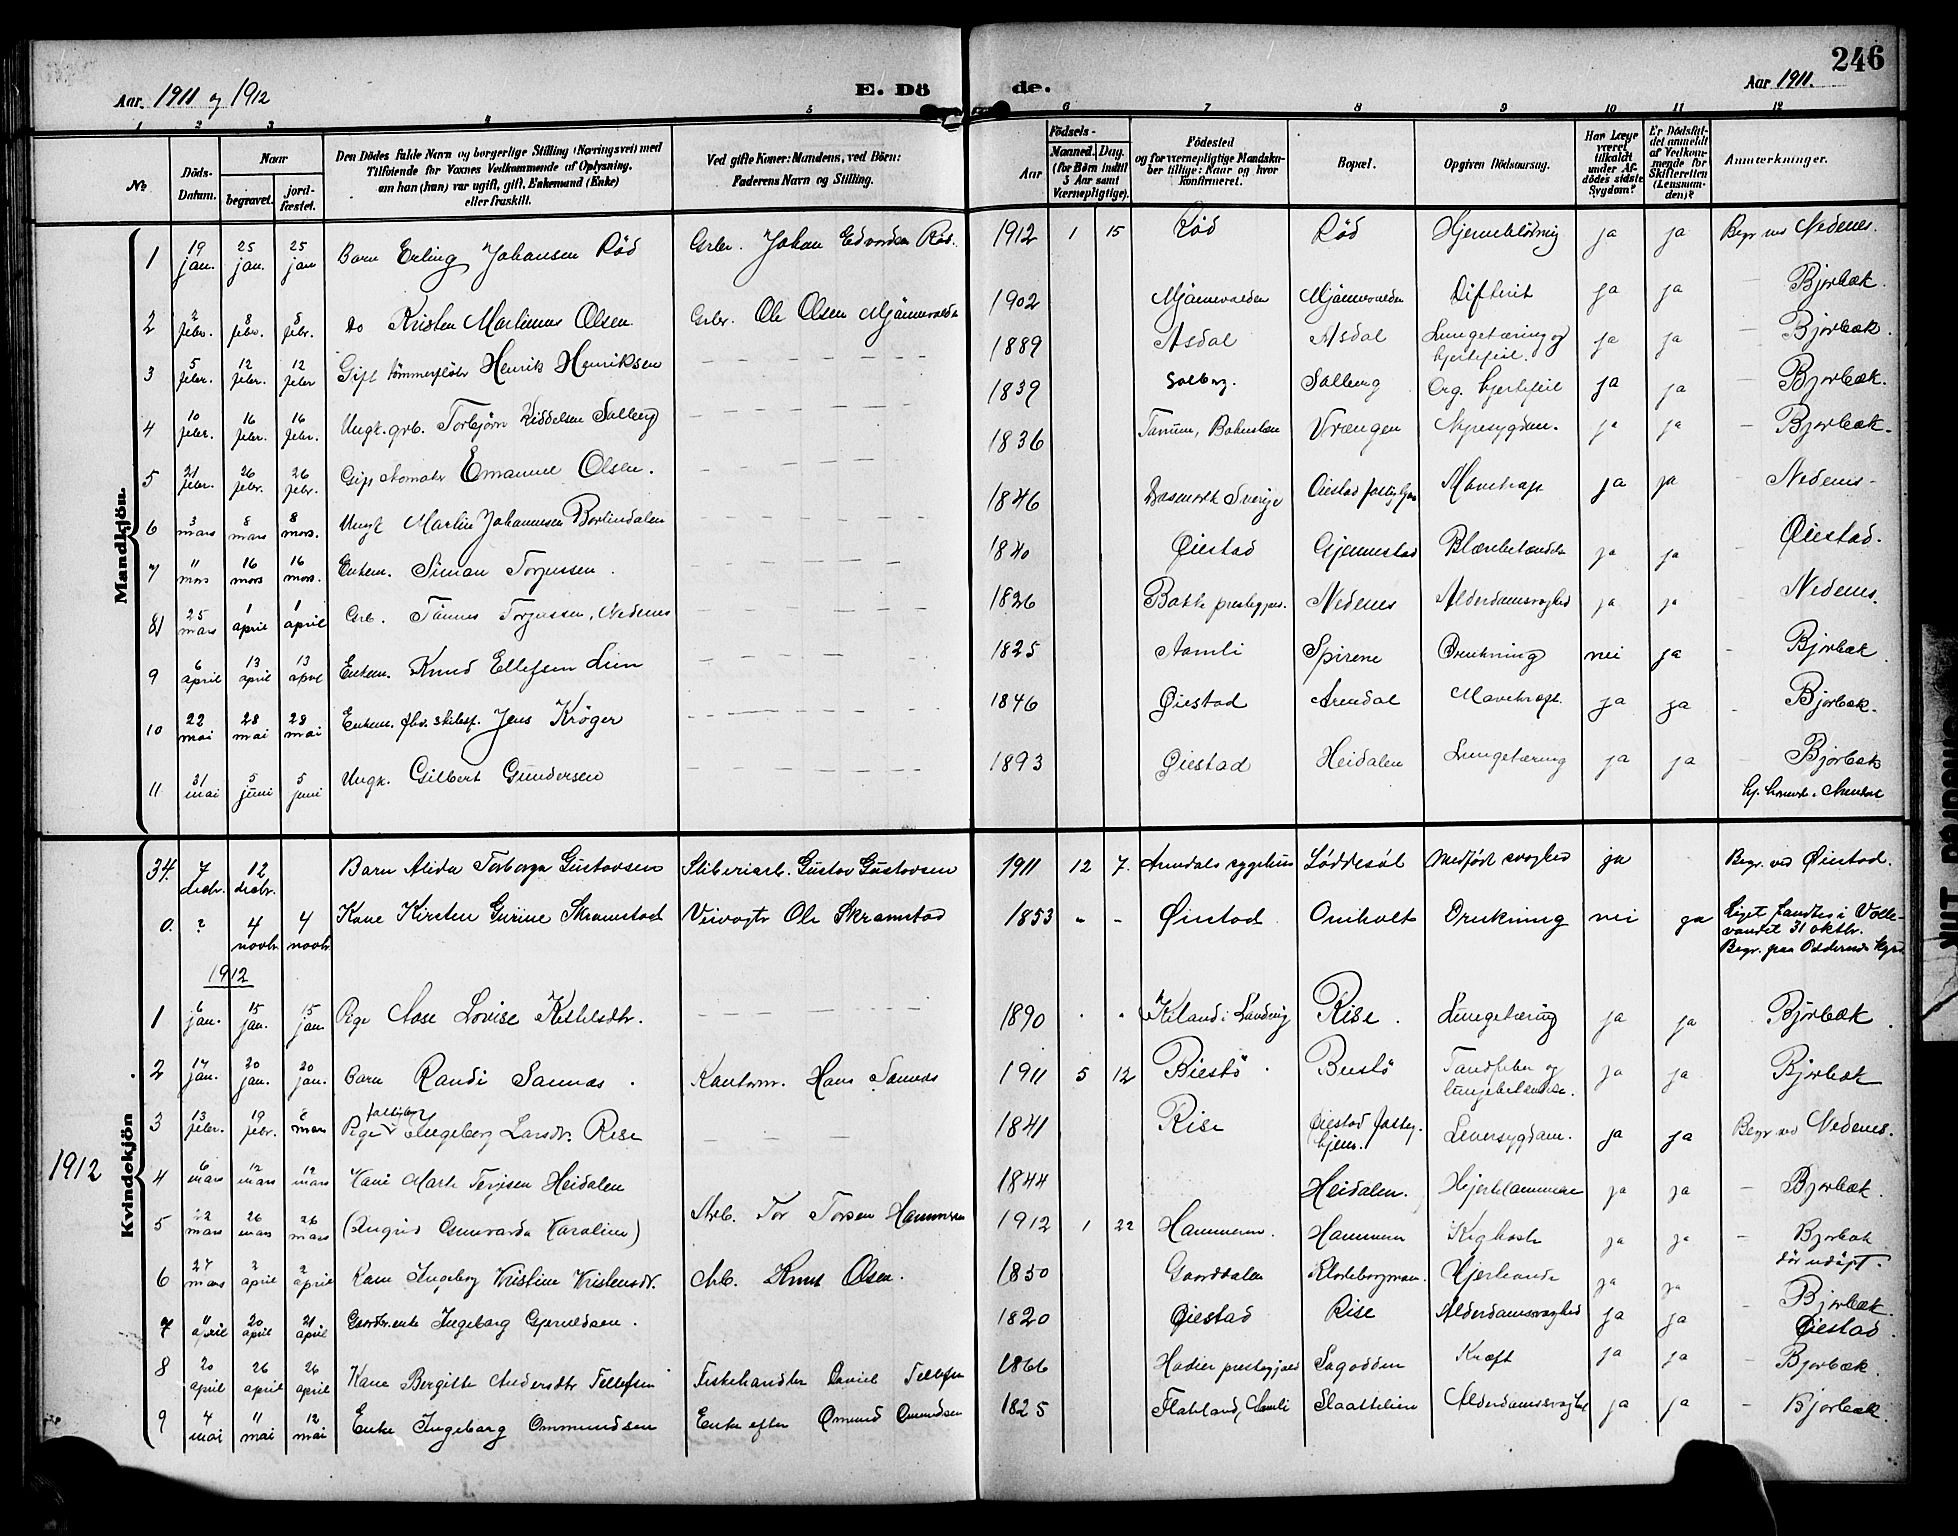 246
Aar. 1911 og 1912
E. Dö de.
Aar 1911.
1 2 3 4 5 6 7 8 9 10 11 12
No.
Döds-Datum.
Naar
begravet.
jord-fæstet.
Den Dödes fulde Navn og borgerlige Stilling (Næringsvei) med
Tilföiende for Voxnes Vedkommende af Oplysning,
om han (hun) var ugift, gift, Enkemand (Enke)
eller fraskilt.
Ved gifte Koner: Mandens, ved Börn:
Faderens Navn og Stilling.
Födsels-
Aar
Maaned. Dag.
(for Börn indtil
5 Aar samt
Værnepligtige).
Födested
og for værnepligtige Mandska-
ber tillige: Naar og hvor
konfirmeret.
Bopæl.
Opgiven Dödsaarsag.
Har Læge
været
tilkaldt
under Af-
dödes sidste
Sygdom?
Er Dödsfal-
det anmeldt
af Vedkom-
mende for
Skifteretten
(Lensman-
den)?
Anmærkninger.
Mandkjön.
1 19 jan. 25 jan. 25 jan Barn Erling Johansen Röd Grbr. Johan Edvardsen Röd. 1912 1 15 Röd Röd Hjerneblödning ja ja Begr ved Nedenes.
2 2 febr. 8 febr. 8 febr. do Kristen Martinius Olsen Grbr. Ole Olsen 1902 Difterit ja ja - Bjorbæk.
3 5 febr. 12 febr. 12 febr Gift tömmerfløter Henrik Henriksen 1889 Asdal Asdal Lungetæring og hjertefeil. ja ja - Bjorbæk.
4 10 febr. 16 febr. 16 febr. Ungk. grb. Torbjörn Kiddelsen Solberg 1839 Solberg. Solberg Org. hjertefeil ja ja - Bjorbæk.
5 21 febr. 26 febr. 26 febr. Gift Emanuel Olsen. 1836 Tanum, Bohuslen Vrængen Nyresygdom. ja ja - Bjorbæk.
6 3 mars 8 mars 8 mars. Ungk Martin Johannesen 1846 Sverige Øiestad Mavekræft ja ja - Nedenes
7 11 mars 16 mars 16 mars. Enkem. Simon Torjussen. 1840 Øiestad Gjennestad Blærebetændelse ja ja - Øiestad.
8 25 mars 1 april 1 april Grb. Tönnes Torjussen, Nedenes 1826 prestegjeld. Nedenes Alderdomssvaghed ja ja - Nedenes.
9 6 april 13 april 13 april Enkem. Knud Ellefsen Lien 1825 Aamli Spirene Drukning nei ja - Bjorbæk
10 22 mai 28 mai 28 mai Enkem. fhv. skibsf. Jens Kröger 1846 Øiestad Arendal Mavekræft. ja ja - Bjorbæk.
11 31 mai 5 juni 5 juni Ungk. Gilbert Gundersen 1893 Øiestad Heidalen Lungetæring ja ja - Bjorbæk
Kvindekjön
34. 7 decbr. 12 decbr. Barn Alida Torborga Gustavsen Sliberiarb. Gustav Gustavsen 1911 12 7. Arendals sygehus Løddesöl Medfödt svaghed ja Begr. ved Øiestad.
0. ? 4 novbr 4 novbr Kone Kirsten Gurine Skramstad Veivogtr Ole Skramstad 1853 - - Øiestad Omholt Drukning nei ja Liget fandtes i Volle-
vandet 31 oktbr.
Begr. paa Oddernes kgrd
1912
1912
1 6 jan. 15 jan. 15 jan Pige Aase Lovise Ketilsdtr. 1890 Rise. Lungetæring ja ja - Bjorbæk.
2 17 jan. 20 jan. 20 jan. Barn Randi Sannæs. Kontorm. Hans Sannæs 1911 5 12 Biestö Buestö Tandfeber og lungebetændelse. ja ja Bjorbæk
3 13 febr. 19 febr. 2 mars Pige Ingeborg Larsdtr. Rise 1841 Rise Øiestad fattighjem. Leversygdom. ja ja Begr. ved Nedenes.
4 6 mars 12 mars 12 mars Kone Marte Terjesen Heidalen 1844 Heidalen. Hjertelammelse ja ja - Bjorbæk.
5 22 mars 26 mars 26 mars (Angrid Gunvarda Karoline) Arb. Tor Torsen Hammeren 1912 1 22 Hammeren. Hammeren Kighoste ja ja - Bjorbæk
dör udöpt.
6 27 mars 2 april 2 april Kone Ingeborg Kristine Kristensdtr. Arb. Knut Olsen. 1850 Gaarddalen ja ja - Bjorbæk.
7 11 april 20 april 21 april Gaardbr.enke Ingeborg Gjeruldsen. 1820 Øiestad Rise Alderdomssvaghed ja ja Øiestad.
8 20 april 26 april 26 april Kone Bergitte Andersdtr Tellefsen Fiskehandler Daniel Tellefsen 1866 prestegjeld Sagodden Kræft ja ja - Bjorbæk.
9 4 mai 11 mai 12 mai Enke Ingeborg Ommundsen Enke efter Omund Omundsen 1825 Aamli Slaattelien Alderdomssvaghed ja ja - Bjorbæk.